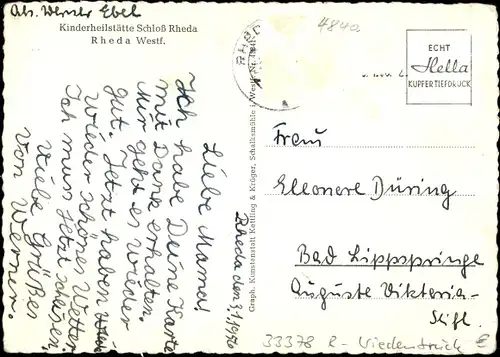 Abs. Werner Ebel
Kinderheilstätte Schloß Rheda
Rheda Westf.
Rheda den 3.1.1956
Liebe Mama!
Ich habe Deine Karte
mit Dank erhalten.
Mir geht es wieder
gut. Jetzt haben
wieder schönes Wetter.
Ich muss jetzt schliessen.
Viele Grüße
von Werner.
Graph. Kunstanstalt Kettling & Krüger, Schalksmühle i. Westf.
4840
ECHT
Hella
KUPFERTIEFDRUCK
Frau
Elleonere Düring
Bad Lippspringe
Auguste Viktoria-
Stift.
33378 R-Wiedenbrück